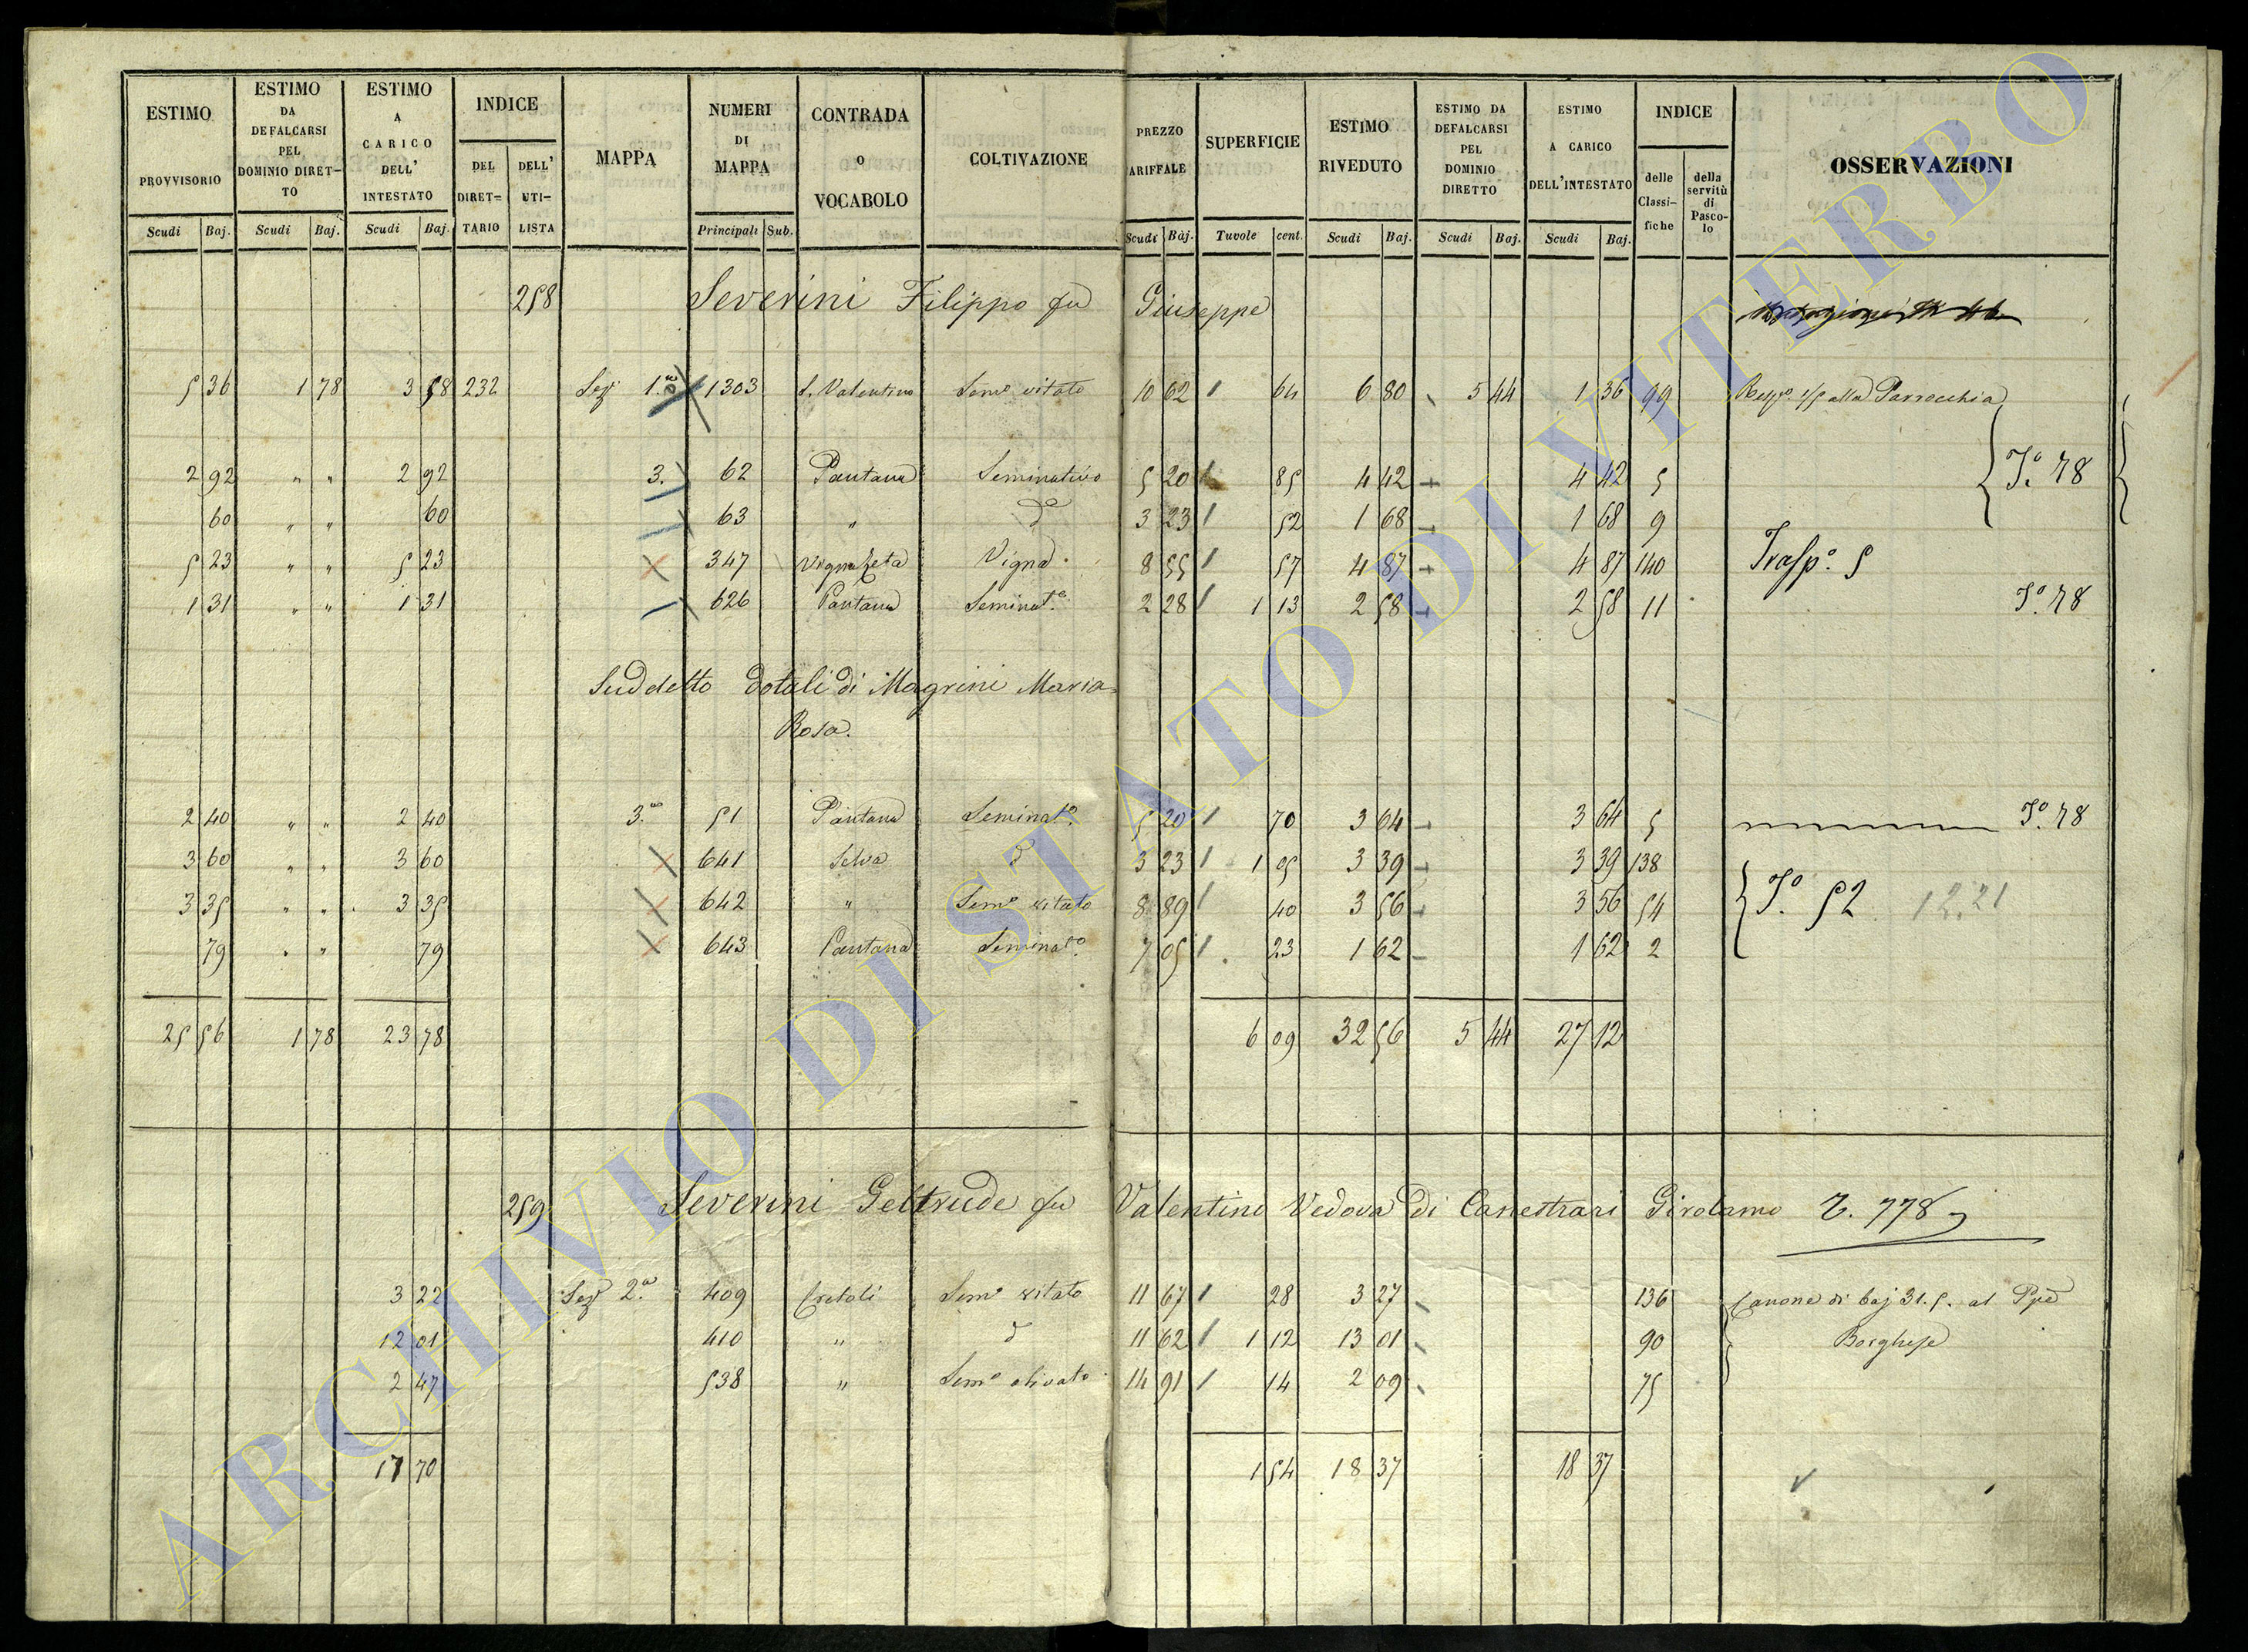 ESTIMO PROVVISORIO
ESTIMO DA DEFALCARSI PEL DOMINIO DIRET-TO
ESTIMO A CARICO DELL' INTESTATO
INDICE
DEL DIRET-TARIO
DELL' UTI-LISTA
MAPPA
NUMERI DI MAPPA
CONTRADA O VOCABOLO
COLTIVAZIONE
PREZZO ARIFFALE
SUPERFICIE
ESTIMO RIVEDUTO
ESTIMO DA DEFALCARSI PEL DOMINIO DIRETTO
ESTIMO A CARICO DELL'INTESTATO
INDICE
delle Classi-fiche
della servitù di Pasco-lo
OSSERVAZIONI
Scudi Baj. Scudi Baj. Scudi Baj. Principali Sub. Scudi Baj. Tavole cent. Scudi Baj. Scudi Baj. Scudi Baj.
258 Severini Filippo fu Giuseppe
5 36 1 78 3 58 232 Sez 1.a 1303 S. Valentino Sem.o vitato 10 62 64 6 80 5 44 1 36 99 alla Parrocchia
2 92 " " 2 92 3. 62 Pantana Seminativo 5 20 85 4 42 4 42 5 T.o 78
60 " " 60 63 " d.o 3 23 52 1 68 1 68 9
5 23 " " 5 23 347 Vignazeta Vigna 8 55 57 4 87 4 87 140 Trasp.o 5
1 31 " " 1 31 626 Pantana Seminat.o 2 28 1 13 2 58 2 58 11 T.o 78
Suddetto dotali di Magrini Maria
Rosa.
2 40 " " 2 40 3.a 51 Pantana Seminat.o 5 20 70 3 64 3 64 5 T.o 78
3 60 " " 3 60 641 Selva d 3 23 1 05 3 39 3 39 138
3 35 " " 3 35 642 " Sem.o vitato 8 89 40 3 56 3 56 54 T.o 52 12.21
79 " " 79 643 Pantana Seminat.o 7 05 23 1 62 1 62 2
25 56 1 78 23 78 6 09 32 56 5 44 27 12
259 Severini Geltrude fu Valentino Vedova di Canestrari Girolamo T. 778
3 22 Sez 2.a 409 Cretoli Sem.o vitato 11 67 28 3 27 136 Canone di baj 31.5. al Ppe
12 01 410 " d 11 62 1 12 13 01 90 Borghese
2 47 538 " Sem.o olivato 14 91 14 2 09 75
17 70 1 54 18 37 18 37
ARCHIVIO DI STATO DI VITERBO